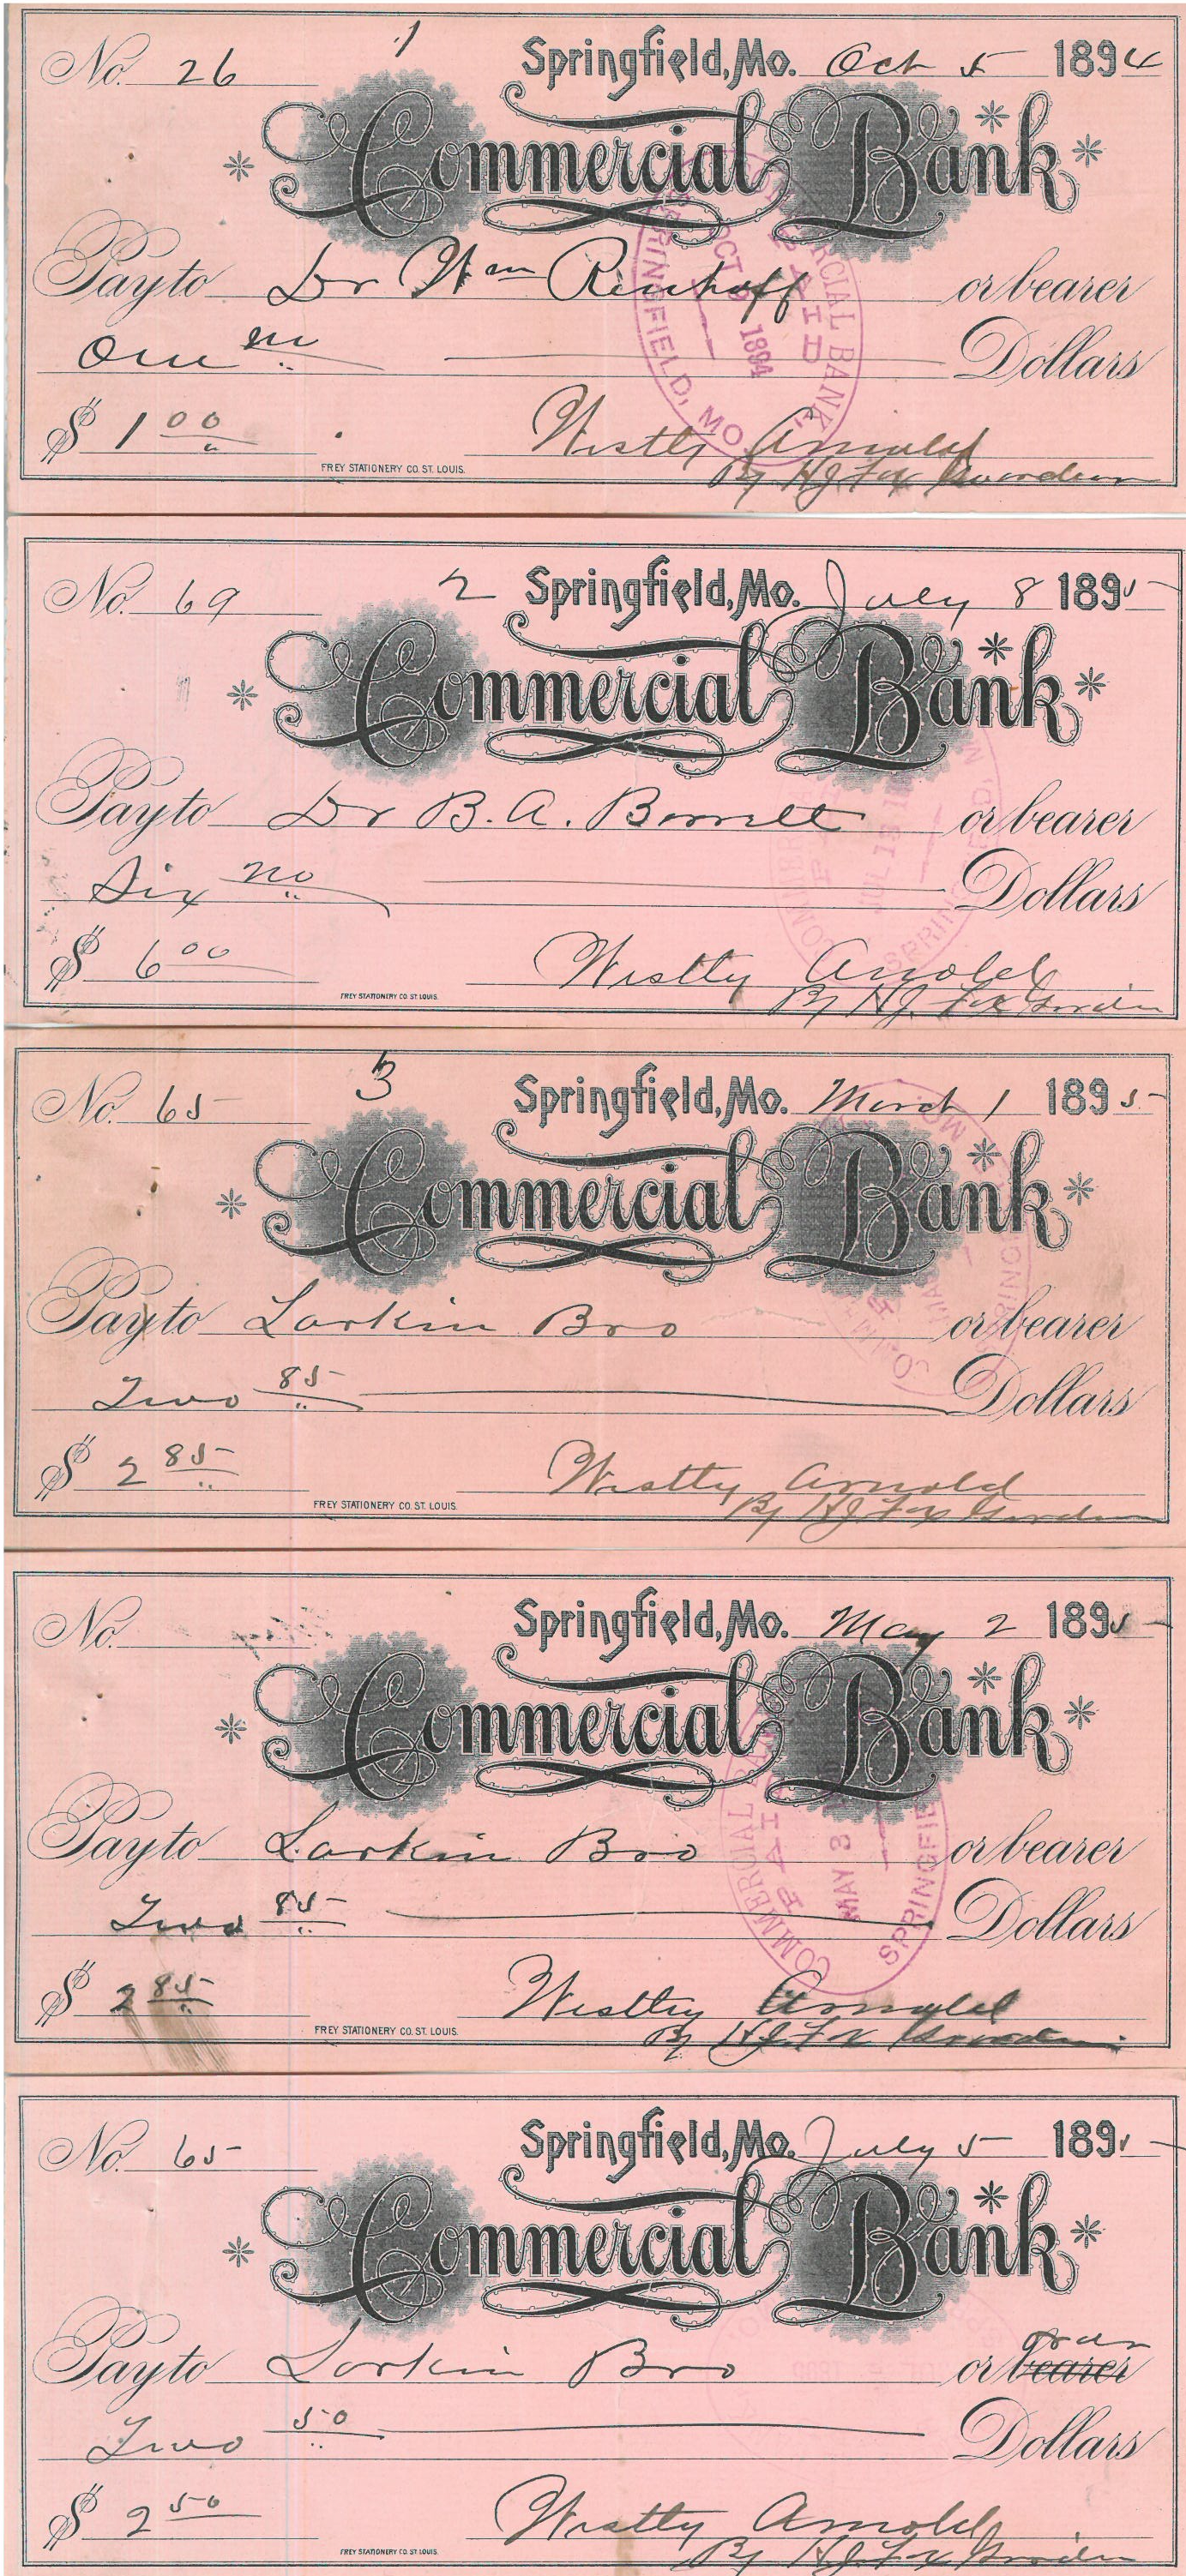 No. 26 1 Springfield, Mo. Oct 5 1894
Commercial Bank
Pay to Dr Wm Rienhoff or bearer
One no Dollars
$ 1 00
Westly Arnold
FREY STATIONERY CO. ST. LOUIS.
By H J Fox Guardian
COMMERCIAL BANK
PAID
OCT 1894
SPRINGFIELD, MO
No. 69 2 Springfield, Mo. July 8 1895
Commercial Bank
Pay to Dr B. A. Barrett or bearer
Six no Dollars
$ 6 00
Westly Arnold
FREY STATIONERY CO. ST. LOUIS.
By H J. Fox Guardian
No. 65 3 Springfield, Mo. March 1 1895
Commercial Bank
Pay to Larkin Bro or bearer
Two 85 Dollars
$ 2 85
Westly Arnold
FREY STATIONERY CO. ST. LOUIS.
By H J. Fox Guardian
No. Springfield, Mo. May 2 1895
Commercial Bank
Pay to Larkin Bro or bearer
Two 85 Dollars
$ 2 85
Westley Arnold
FREY STATIONERY CO. ST. LOUIS.
By H J. Fox Guardian
COMMERCIAL BANK
PAID
MAY 3
SPRINGFIE
No. 65 Springfield, Mo. July 5 1895
Commercial Bank
order
Pay to Larkin Bro or bearer
Two 50 Dollars
$ 2 50
Westly Arnold
FREY STATIONERY CO. ST. LOUIS.
By H J. Fox Guardian